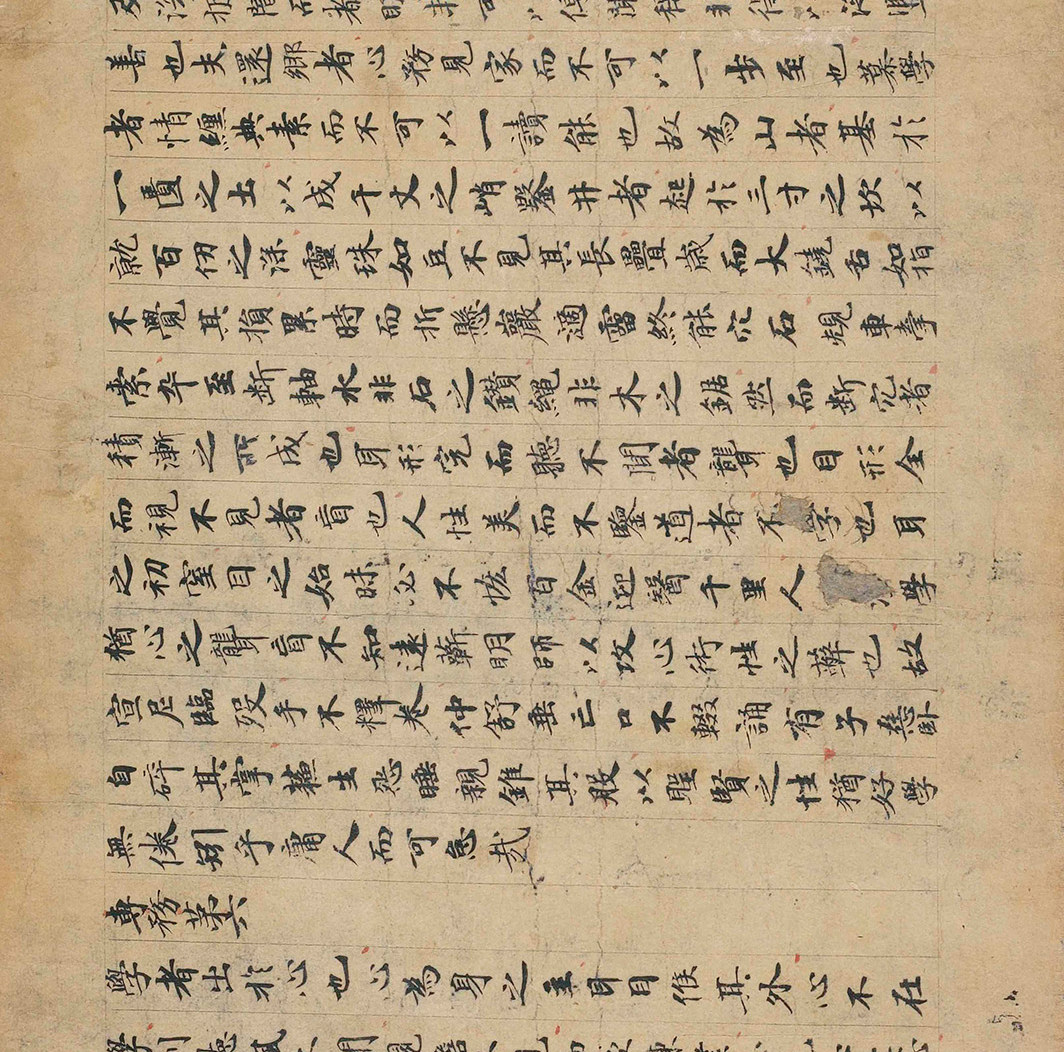 善也夫還鄉者心務見家而不可以一步至也慕學
者情纏典素而不可以一讀能也故為山者基於
一匱之土以成千丈之峭鑿井者起於三寸之坎以
就百仞之深靈珠如豆不見其長疊歲而大鐃舌如指
不覺其損累時而折懸巖滴霤終能穴石規車牽
索卒至断軸水非石之鑽繩非木之鋸然而断穴者
積漸之所成也耳形完而聽不聞者聾也目形全
而視不見者盲也人性美而不鑒道者不學也耳
之初窒目之始昧必不恡百金迎醫千里人學
猶心之聾盲不知遠蘄明師以攻心術性之弊也故
宣尼臨歿手不釋卷仲舒垂亡口不輟誦有子惡卧
自碎其掌蘇生患睡親錐其股以聖賢之性猶好學
無倦矧乎庸人而可怠哉
專務第六
學者出於心也心為身之主耳目候其外心不在